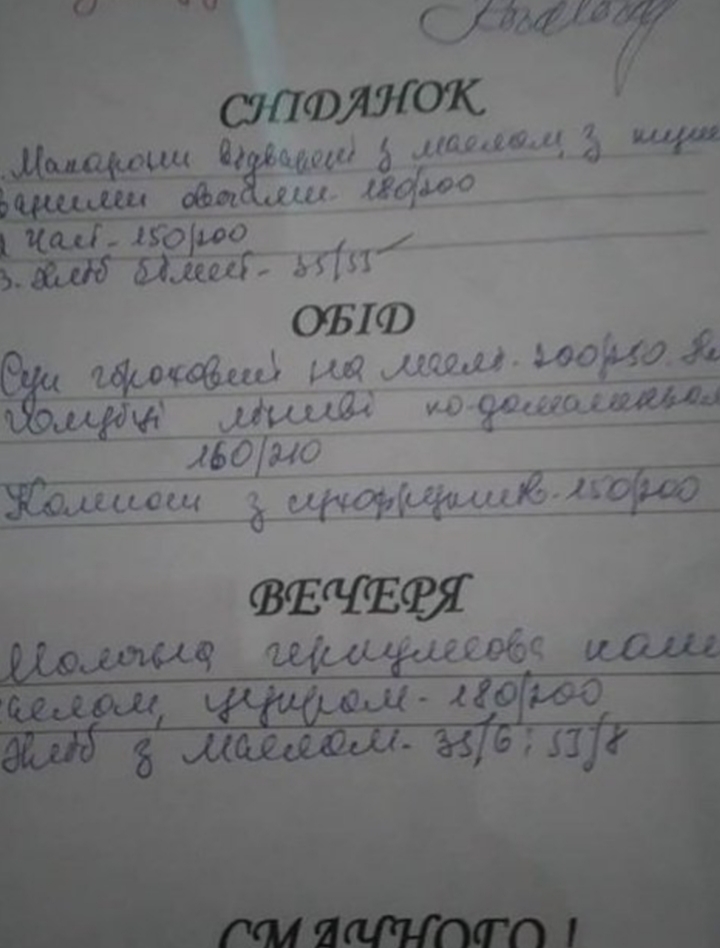 СНІДАНОК
Макарони відварені з маслом, з
овочами. 180/200
Чай - 150/200
3. Хліб білий - 35/55
ОБІД
Суп гороховий на маслі. 200/250.
Голубці ліниві по-домашньому
160/210
Компот з сухофруктів. 150/200
ВЕЧЕРЯ
Молочна геркулесова каша
маслом, цукром - 180/200
Хліб з маслом. 35/6; 55/8
СМАЧНОГО!